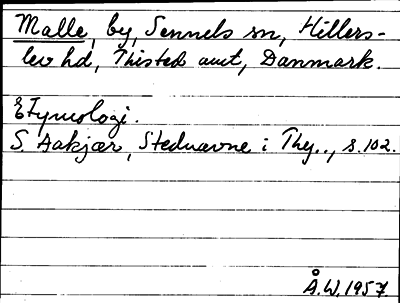 Malle, by, Sennels sn, Hillers-
lev hd, Thisted amt, Danmark.
Etymologi.
S. Aakjær, Stednavne i Thy.., s.102.
Å.W.1957